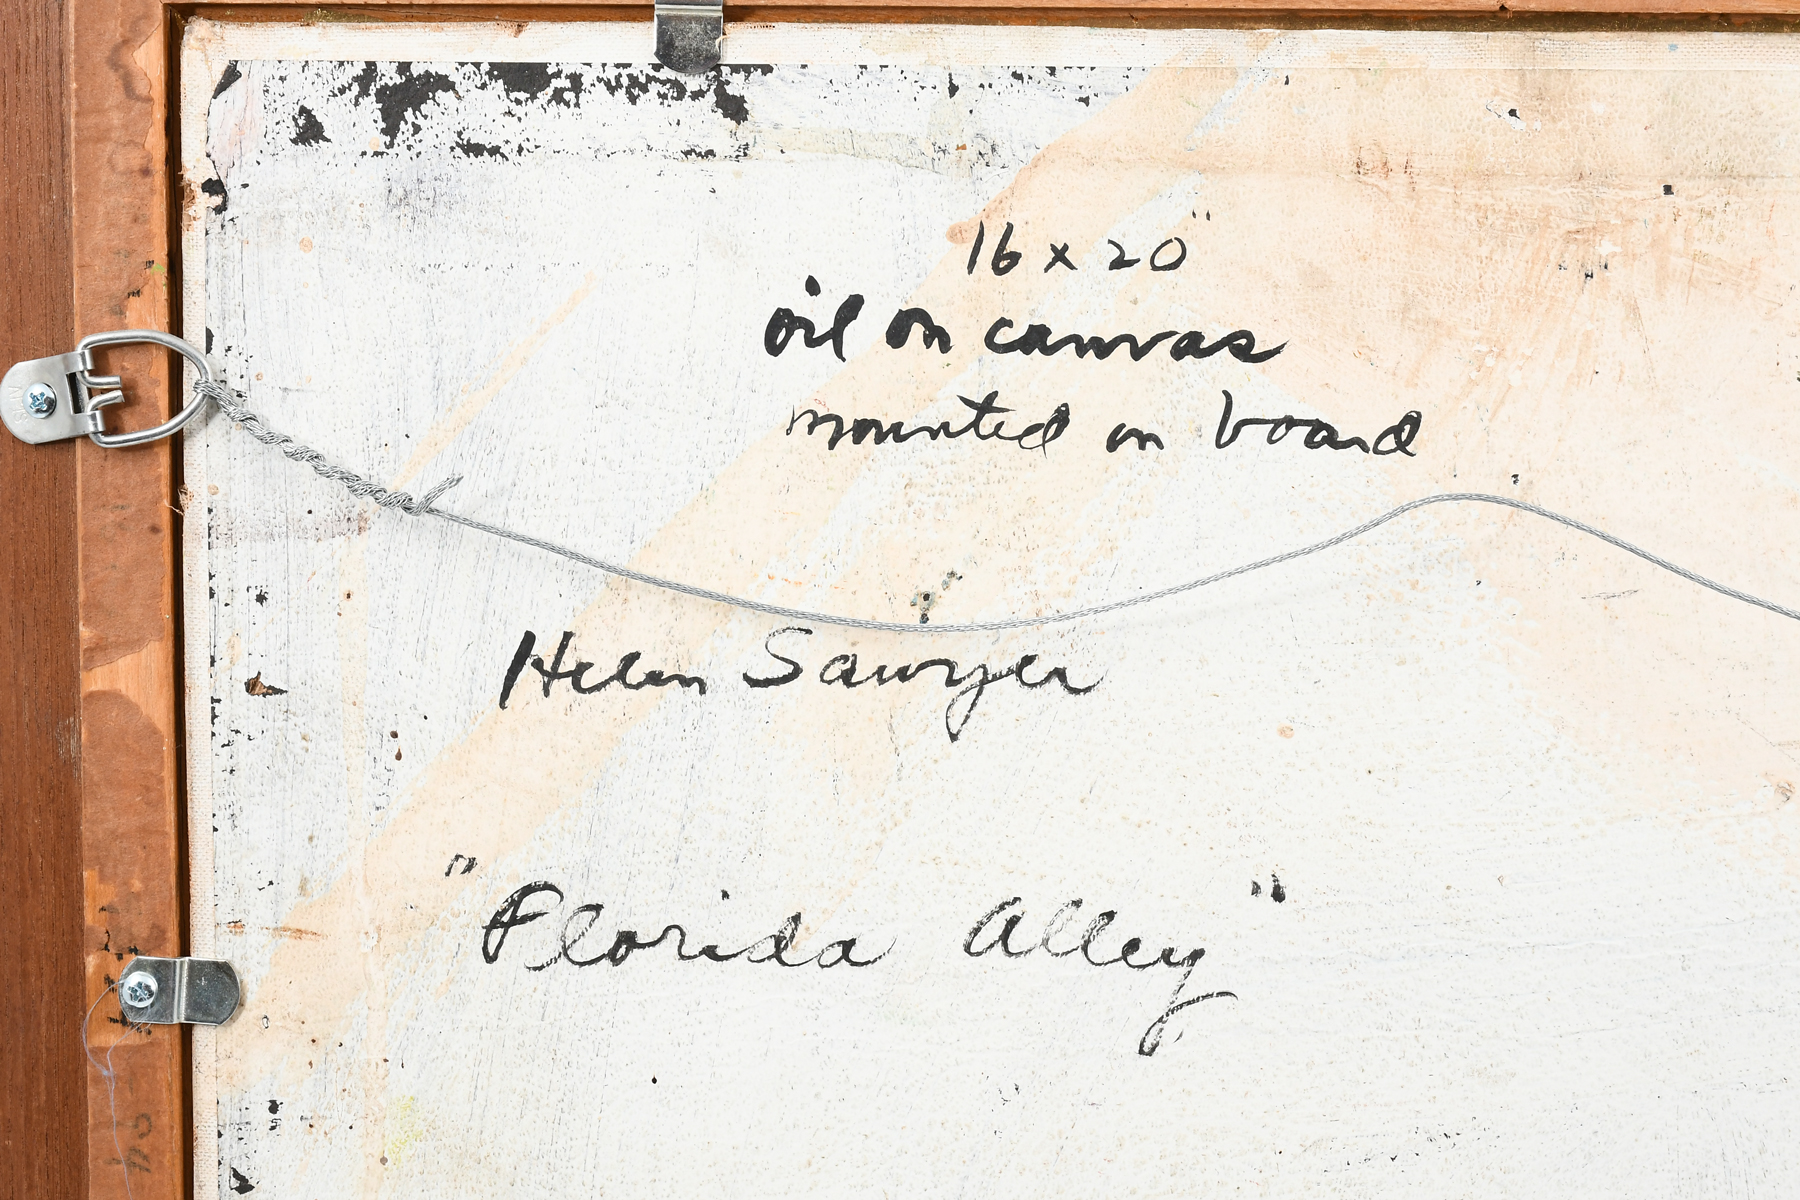 16 x 20"
oil on canvas
mounted on board
Helen Sawyer
"Florida Alley"